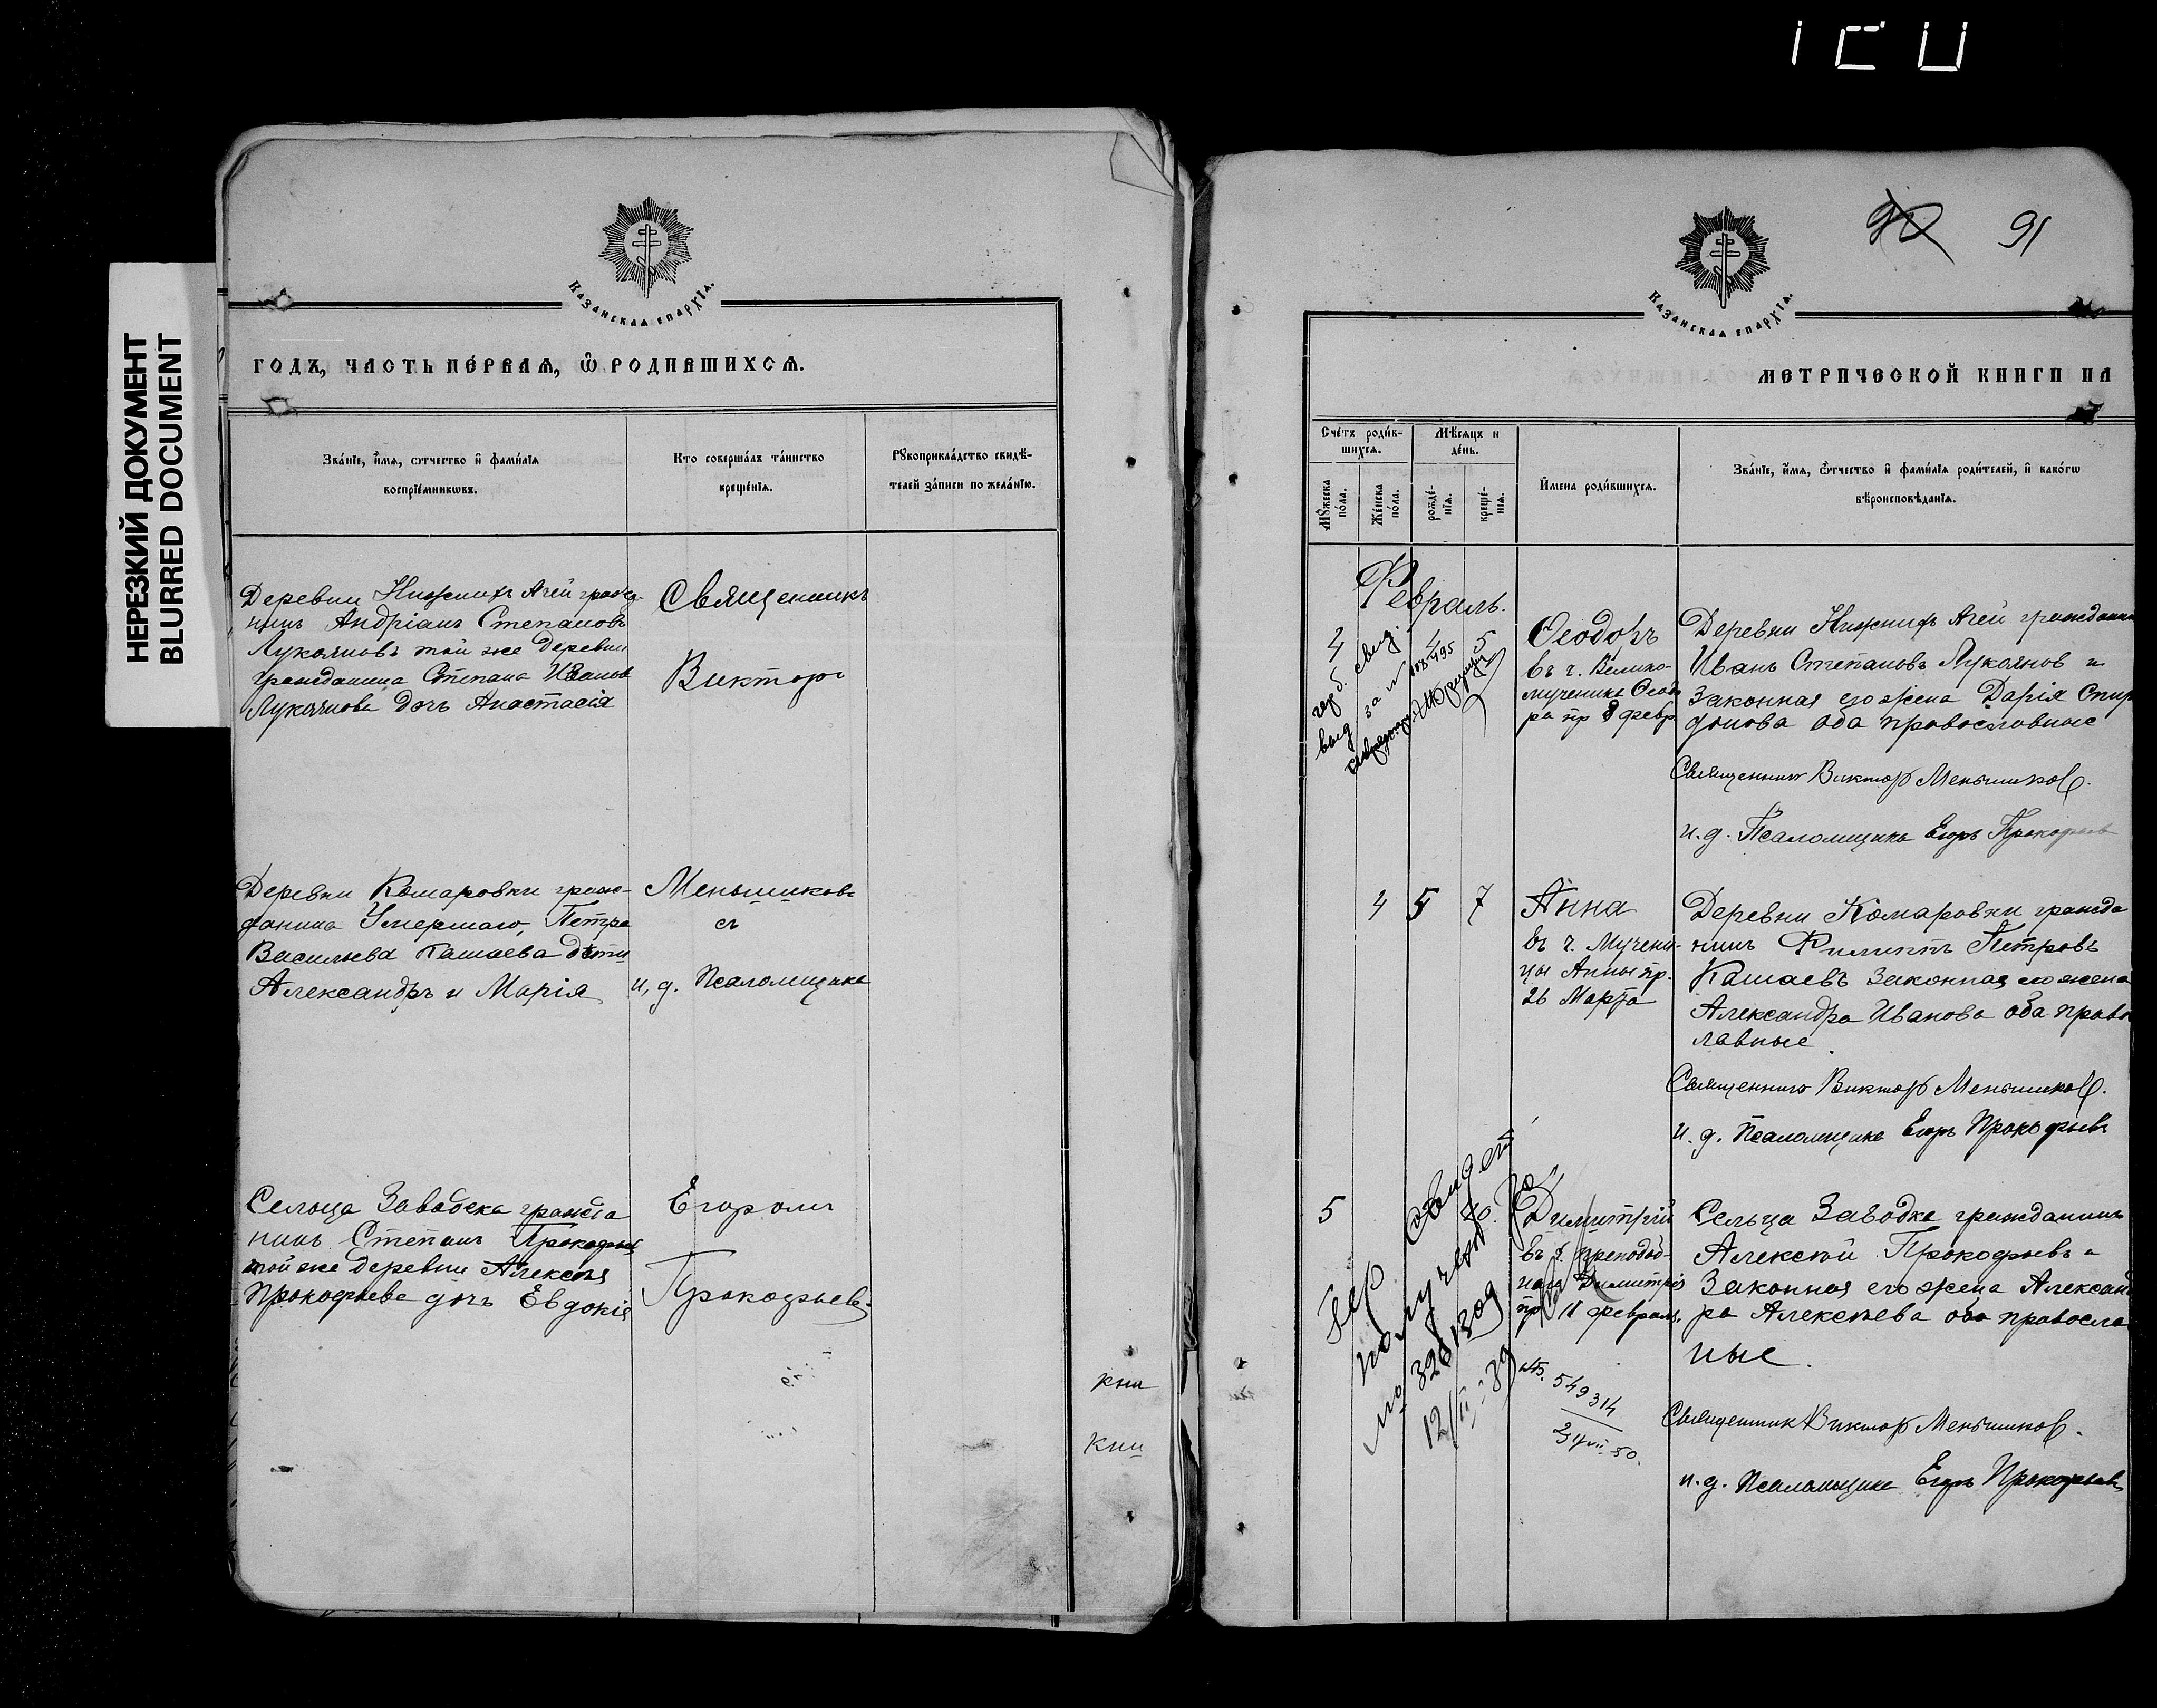 НЕРЕЗКИЙ ДОКУМЕНТ
BLURRED DOCUMENT
КАЗАНСКАѦ ЕПАРХІѦ.
ГОДЪ, ЧАСТЬ ПЕ́РВАѦ, Ѽ РОДИВШИХСѦ.
Зва́нїе, и҆́мѧ, ѻ҆́тчество и҆ фами́лїѧ
воспрїе́мникѡвъ.
Кто соверша́лъ та́инство
креще́нїѧ.
Рꙋкоприкла́дство свидѣ́-
телей за́писи по жела́нїю.
Деревни Нижнихъ Ачей гражд-
нинъ Андріанъ Степановъ
Лукояновъ той же деревни
гражданина Степана Иванов
Лукоянова дочь Анастасія
Священникъ
Викторъ
Деревни Комаровки граж-
данина Умершаго, Петра
Васильева Кашаева дѣти
Александръ и Марія
Меньшиковъ
съ
и, д. Псаломщика
Сельца Заводска граждa
нинъ Степанъ Прокофьев
той же деревни Алексѣя
Прокофьева дочь Евдокія
Егоромъ
Прокофьев.
кни
кни
91
КАЗАНСКАѦ ЕПАРХІѦ.
МЕТРИЧЕСКОЙ КНИГИ НА
Сче́тъ роди́в-
шихсѧ.
Мѣ́сѧцъ и
де́нь.
Мꙋ́жеска
по́ла.
Же́нска
по́ла.
рожде́-
нїѧ.
креще́-
нїѧ.
И҆мена роди́вшихсѧ.
Зва́нїе, и҆́мѧ, ѻ҆́тчество и҆ фами́лїѧ роди́телей, и҆ како́гѡ
вѣ̀роисповѣ́данїѧ.
Февраль.
4 4 5
Ѳеодоръ
въ ч. Велико-
мученика Ѳеодо
ра пр 8 февр.
Деревни Нижнихъ Ачей гражданин
Иванъ Степановъ Лукоянов и
законная его жена Дарія Спир
донова оба православные
Священник Виктор Меньшиков.
и. д. Псаломщика Егоръ Прокофьев
выд за №
4 5 7
Анна
въ ч. Мучени-
цы Анны пр.
26 Марта
Деревни Комаровки гражда
нинъ Филиппъ Петровъ
Кашаевъ законная его жена
Александра Иванова оба право
лавные.
Священник Виктор Меньшиков.
и. д. Псаломщика Егоръ Прокофьевъ
5
Димитрій
въ ч. преподоб-
наго Димитрія
пр 11 февраля.
Сельца Заводка гражданинъ
Алексѣй Прокофьевъ и
законная его жена Александ
ра Алексѣева оба правосла
ные.
Священник Виктор Меньшиков.
и. д. Псаломщика Егоръ Прокофьевъ
получено
12/II-39
549314